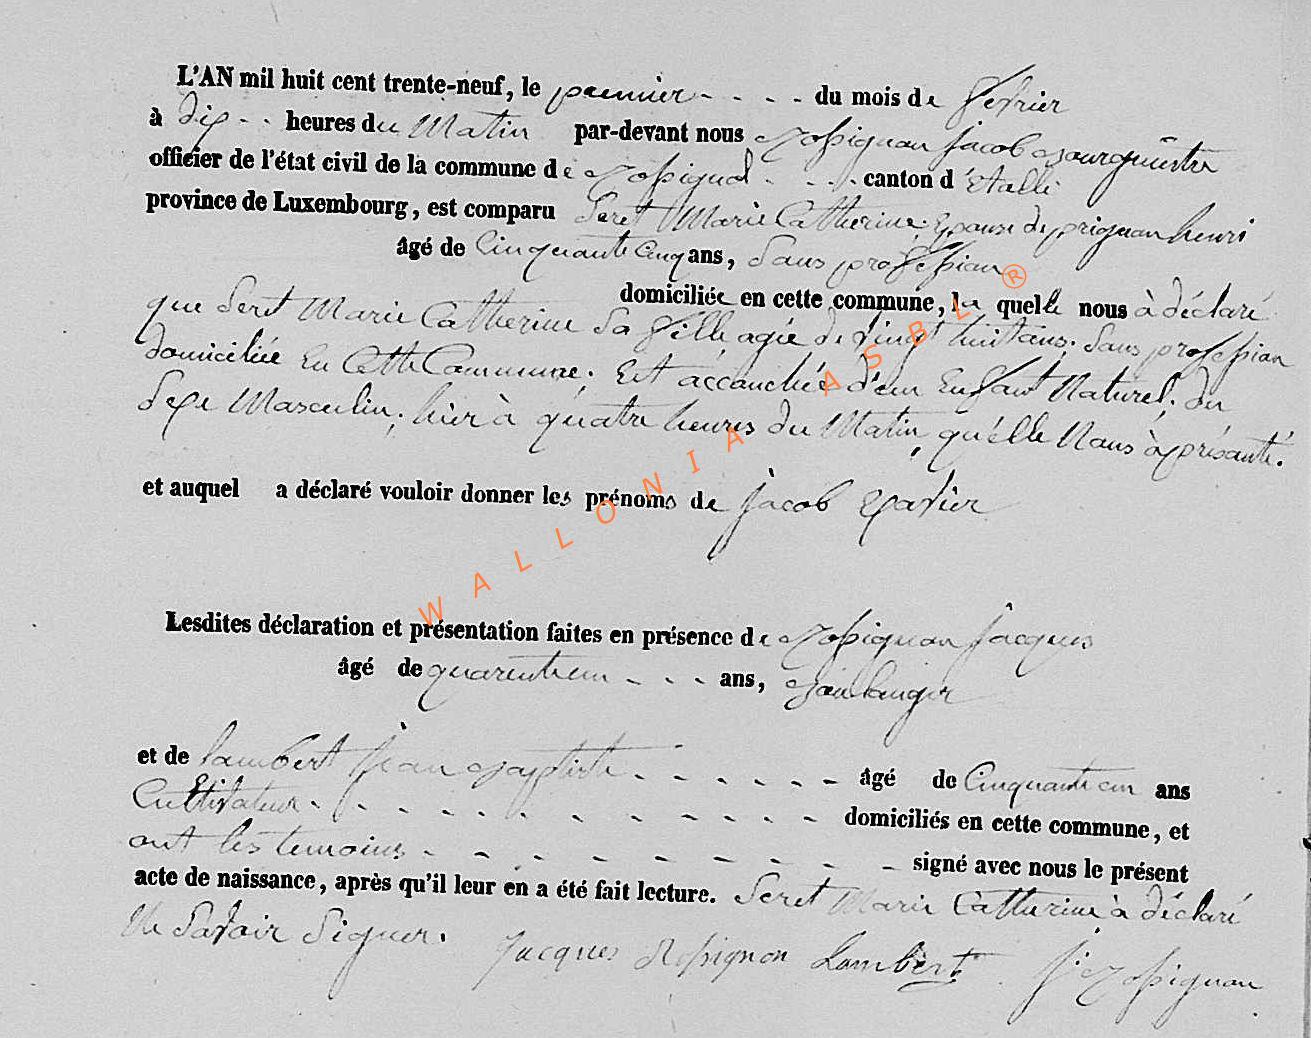 L'AN mil huit cent trente-neuf, le premier - - - - du mois de fevrier
à dix - - heures du Matin par-devant nous Rossignon jacob Bourguiustre
officier de l'état civil de la commune de Rossignol - - - - canton d'étalle
province de Luxembourg, est comparu Seret Marie Catherine. Epouse de prignon henri
âgé de Cinquante Cinq ans, Sans profession
domiciliée en cette commune, la quelle nous à déclaré
que Seret Marie Catherine Sa fille agée de Vingt huit ans; Sans profession
domiciliée En Cette Commune; Est accouchée d'un Enfant Naturel; du
Sexe Masculin; hier à quatre heures du Matin, qu'élle Nous à présanté.
et auquel a déclaré vouloir donner les prénoms de jacob Xavier
Lesdites déclaration et présentation faites en présence de Rossignon jacques
âgé de quarentieun - - - - ans, Boulanger
et de lambert jean Baptiste - - - - - - - âgé de Cinquanteun ans
Cultivateur - - - - - - - - - - - - domiciliés en cette commune, et
ont les temoins - - - - - - - - - - signé avec nous le présent
acte de naissance, après qu'il leur en a été fait lecture. Seret Marie Catherine à déclaré
Ne Savoir Signer.
Jacques Rossignon Lambert j: Rossignon
WALLONIA ASBL ®